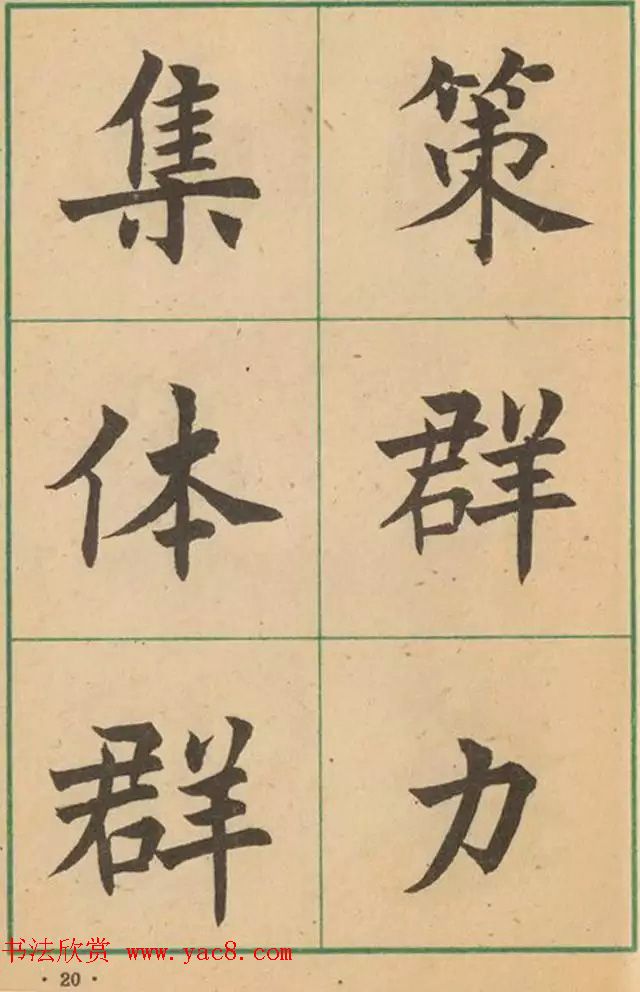 策群力
集体群
书法欣赏 www.yac8.com
· 20 ·